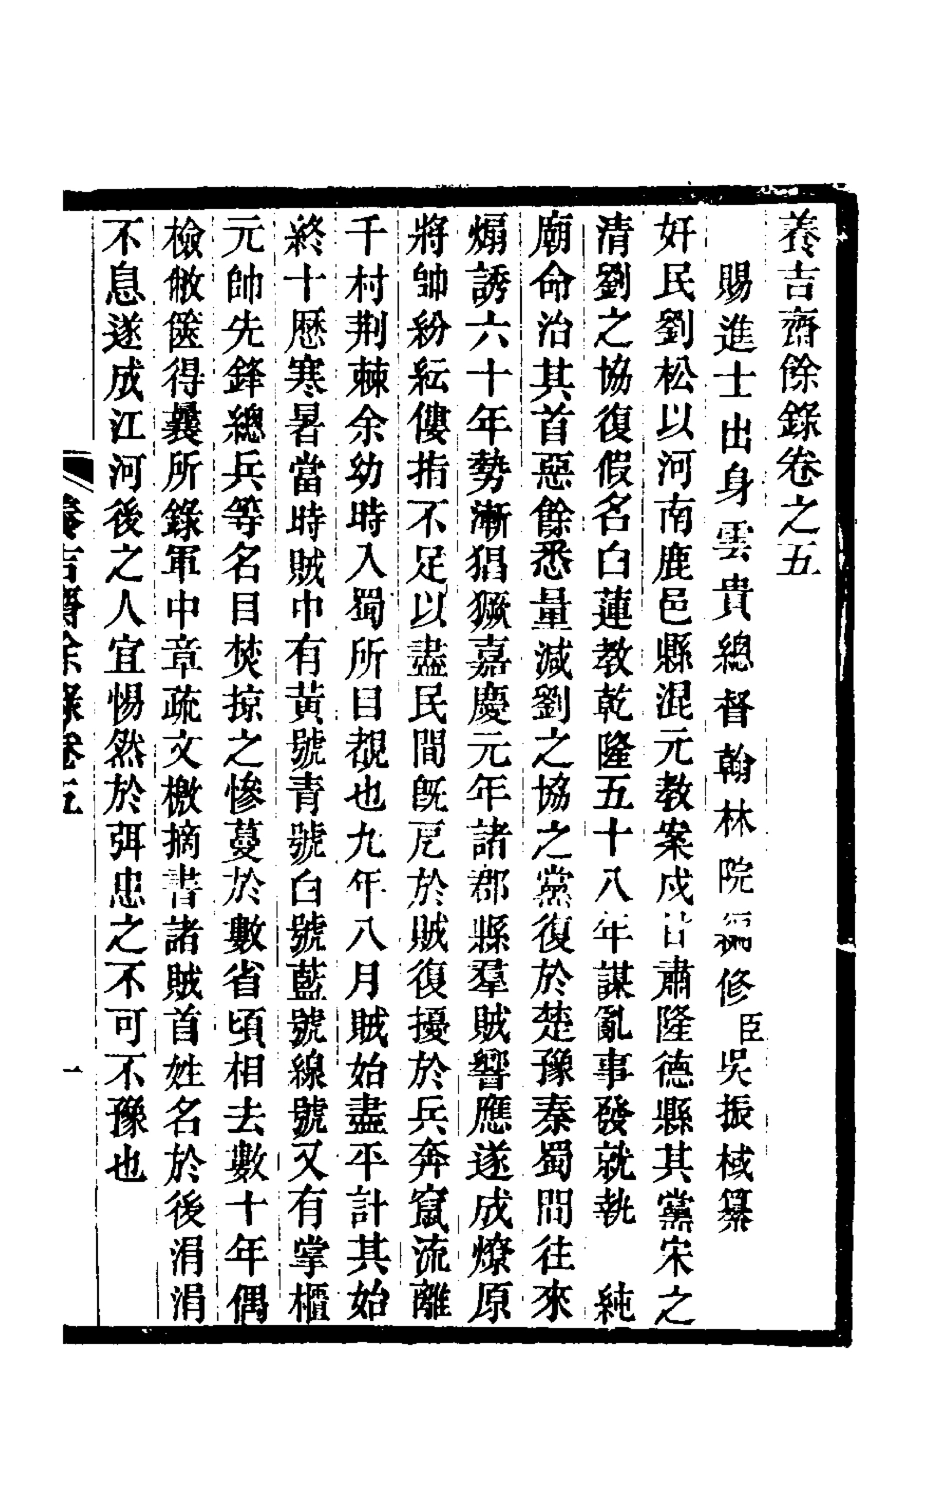 養吉齋餘錄卷之五
賜進士出身雲貴總督翰林院編修臣吳振棫纂
奸民劉松以河南鹿邑縣混元教案戍甘肅隆德縣其黨宋之
清劉之協復假名白蓮教乾隆五十八年謀亂事發就執 純
廟命治其首惡餘悉量減劉之協之黨復於楚豫秦蜀間往來
煽誘六十年勢漸猖獗嘉慶元年諸郡縣羣賊響應遂成燎原
將帥紛紜僂指不足以盡民間旣戹於賊復擾於兵奔竄流離
千村荆棘余幼時入蜀所目覩也九年八月賊始盡平計其始
終十歷寒暑當時賊中有黃號青號白號藍號線號又有掌櫃
元帥先鋒總兵等名目焚掠之慘蔓於數省頃相去數十年偶
檢敝篋得曩所錄軍中章疏文檄摘書諸賊首姓名於後涓涓
不息遂成江河後之人宜惕然於弭患之不可不豫也
養吉齋餘錄卷五
一